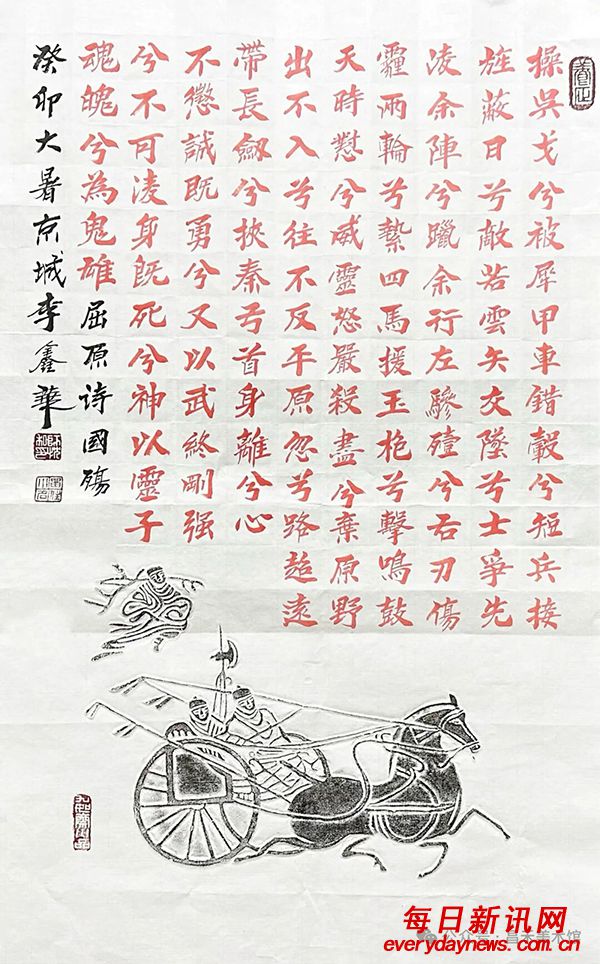 操吳戈兮被犀甲車錯轂兮短兵接
旌蔽日兮敵若雲矢交墜兮士爭先
凌余陣兮躐余行左驂殪兮右刃傷
霾兩輪兮縶四馬援玉枹兮擊鳴鼓
天時懟兮威靈怒嚴殺盡兮棄原野
出不入兮往不反平原忽兮路超遠
帶長劍兮挾秦弓首身離兮心
不懲誠既勇兮又以武終剛强
兮不可凌身既死兮神以靈子
魂魄兮為鬼雄 屈原詩國殤
癸卯大暑京城李鑫華
每日新讯网
everydaynews.com.cn